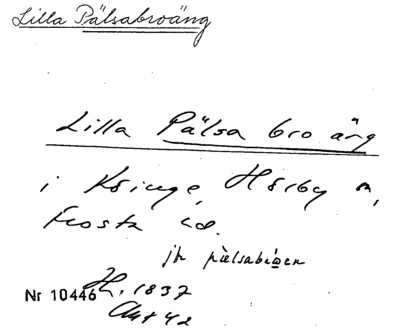 Lilla Pälsabroäng
Lilla Pälsa bro äng
i Kringe, Hörby sn,
Frosta hd.
jfr pælsabroen
Nr 10446 H. 1837
Akt 42